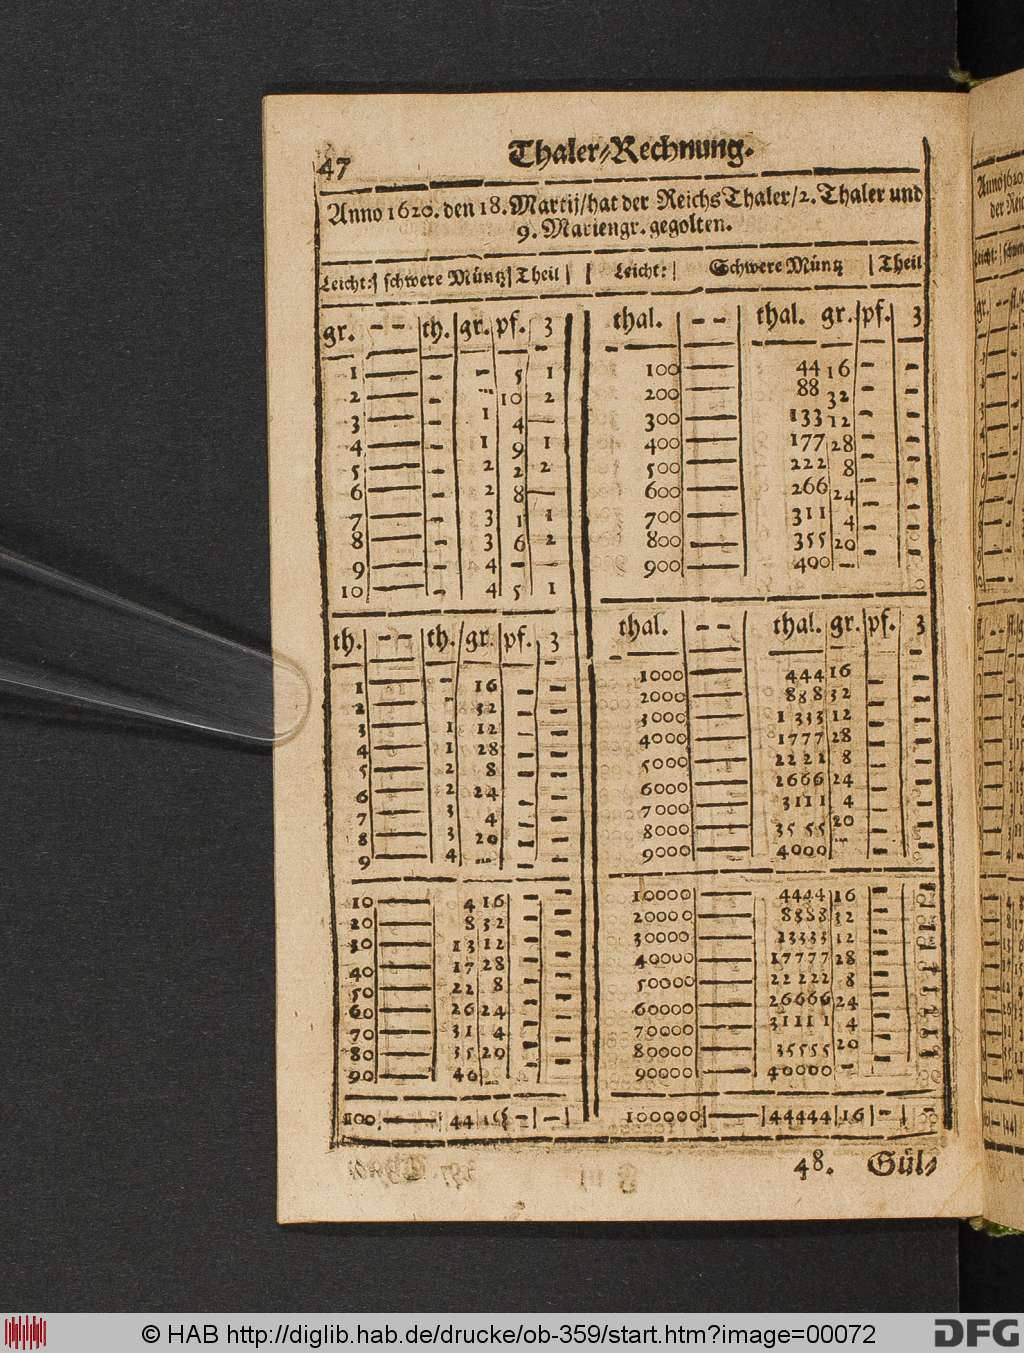 47
Thaler-Rechnung.
Anno 1620. den 18. Martij/hat der Reichs Thaler/2. Thaler und
9. Mariengr. gegolten.
Leicht: | schwere Müntz | Theil | | Leicht: | Schwere Müntz | Theil
gr. -- | th. | gr. | pf. | 3
1 — - - 5 1
2 — - - 10 2
3 — - 1 4 —
4 — - 1 9 1
5 — - 2 2 2
6 — - 2 8 —
7 — - 3 1 1
8 — - 3 6 2
9 — - 4 - —
10 — - 4 5 1
th. -- | th. | gr. | pf. | 3
1 — - 16 - -
2 — - 32 - -
3 — 1 12 - -
4 — 1 28 - -
5 — 2 8 - -
6 — 2 24 - -
7 — 3 4 - -
8 — 3 20 - -
9 — 4 - - -
10 — 4 16 - -
20 — 8 32 - -
30 — 13 12 - -
40 — 17 28 - -
50 — 22 8 - -
60 — 26 24 - -
70 — 31 4 - -
80 — 35 20 - -
90 — 40 - - -
100 — 44 16 - -
thal. | -- | thal. gr. | pf. | 3
100 — 44 16 - -
200 — 88 32 - -
300 — 133 12 - -
400 — 177 28 - -
500 — 222 8 - -
600 — 266 24 - -
700 — 311 4 - -
800 — 355 20 - -
900 — 400 -
thal. | -- | thal. gr. | pf. | 3
1000 — 444 16 - -
2000 — 888 32 - -
3000 — 1333 12 - -
4000 — 1777 28 - -
5000 — 2221 8 - -
6000 — 2666 24 - -
7000 — 3111 4 - -
8000 — 3555 20 - -
9000 — 4000 - - -
10000 — 4444 16 - -
20000 — 8888 32 - -
30000 — 13333 12 - -
40000 — 17777 28 - -
50000 — 22222 8 - -
60000 — 26666 24 - -
70000 — 31111 4 - -
80000 — 35555 20 - -
90000 — 40000 -
100000 — 44444 16 -
48. Gül-
© HAB http://diglib.hab.de/drucke/ob-359/start.htm?image=00072
DFG